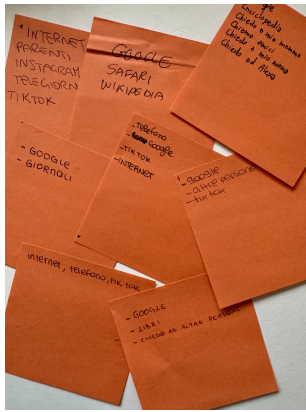 INTERNET
PARENTI
INSTAGRAM
TELEGIORN
TIKTOK
GOOGLE
SAFARI
WIKIPEDIA
Enciclopedia
Chiedo a mia mamma
Chiamo amici
Chiedo a mio
Chiedo ad Alexa
- GOOGLE
- GIORNALI
- Telefono
- Google
- TIKTOK
- INTERNET
- google
- altre persone
- tiktok
internet, telefono, tik tok
- GOOGLE
- LIBRI
- CHIEDO AD ALTRE PERSONE